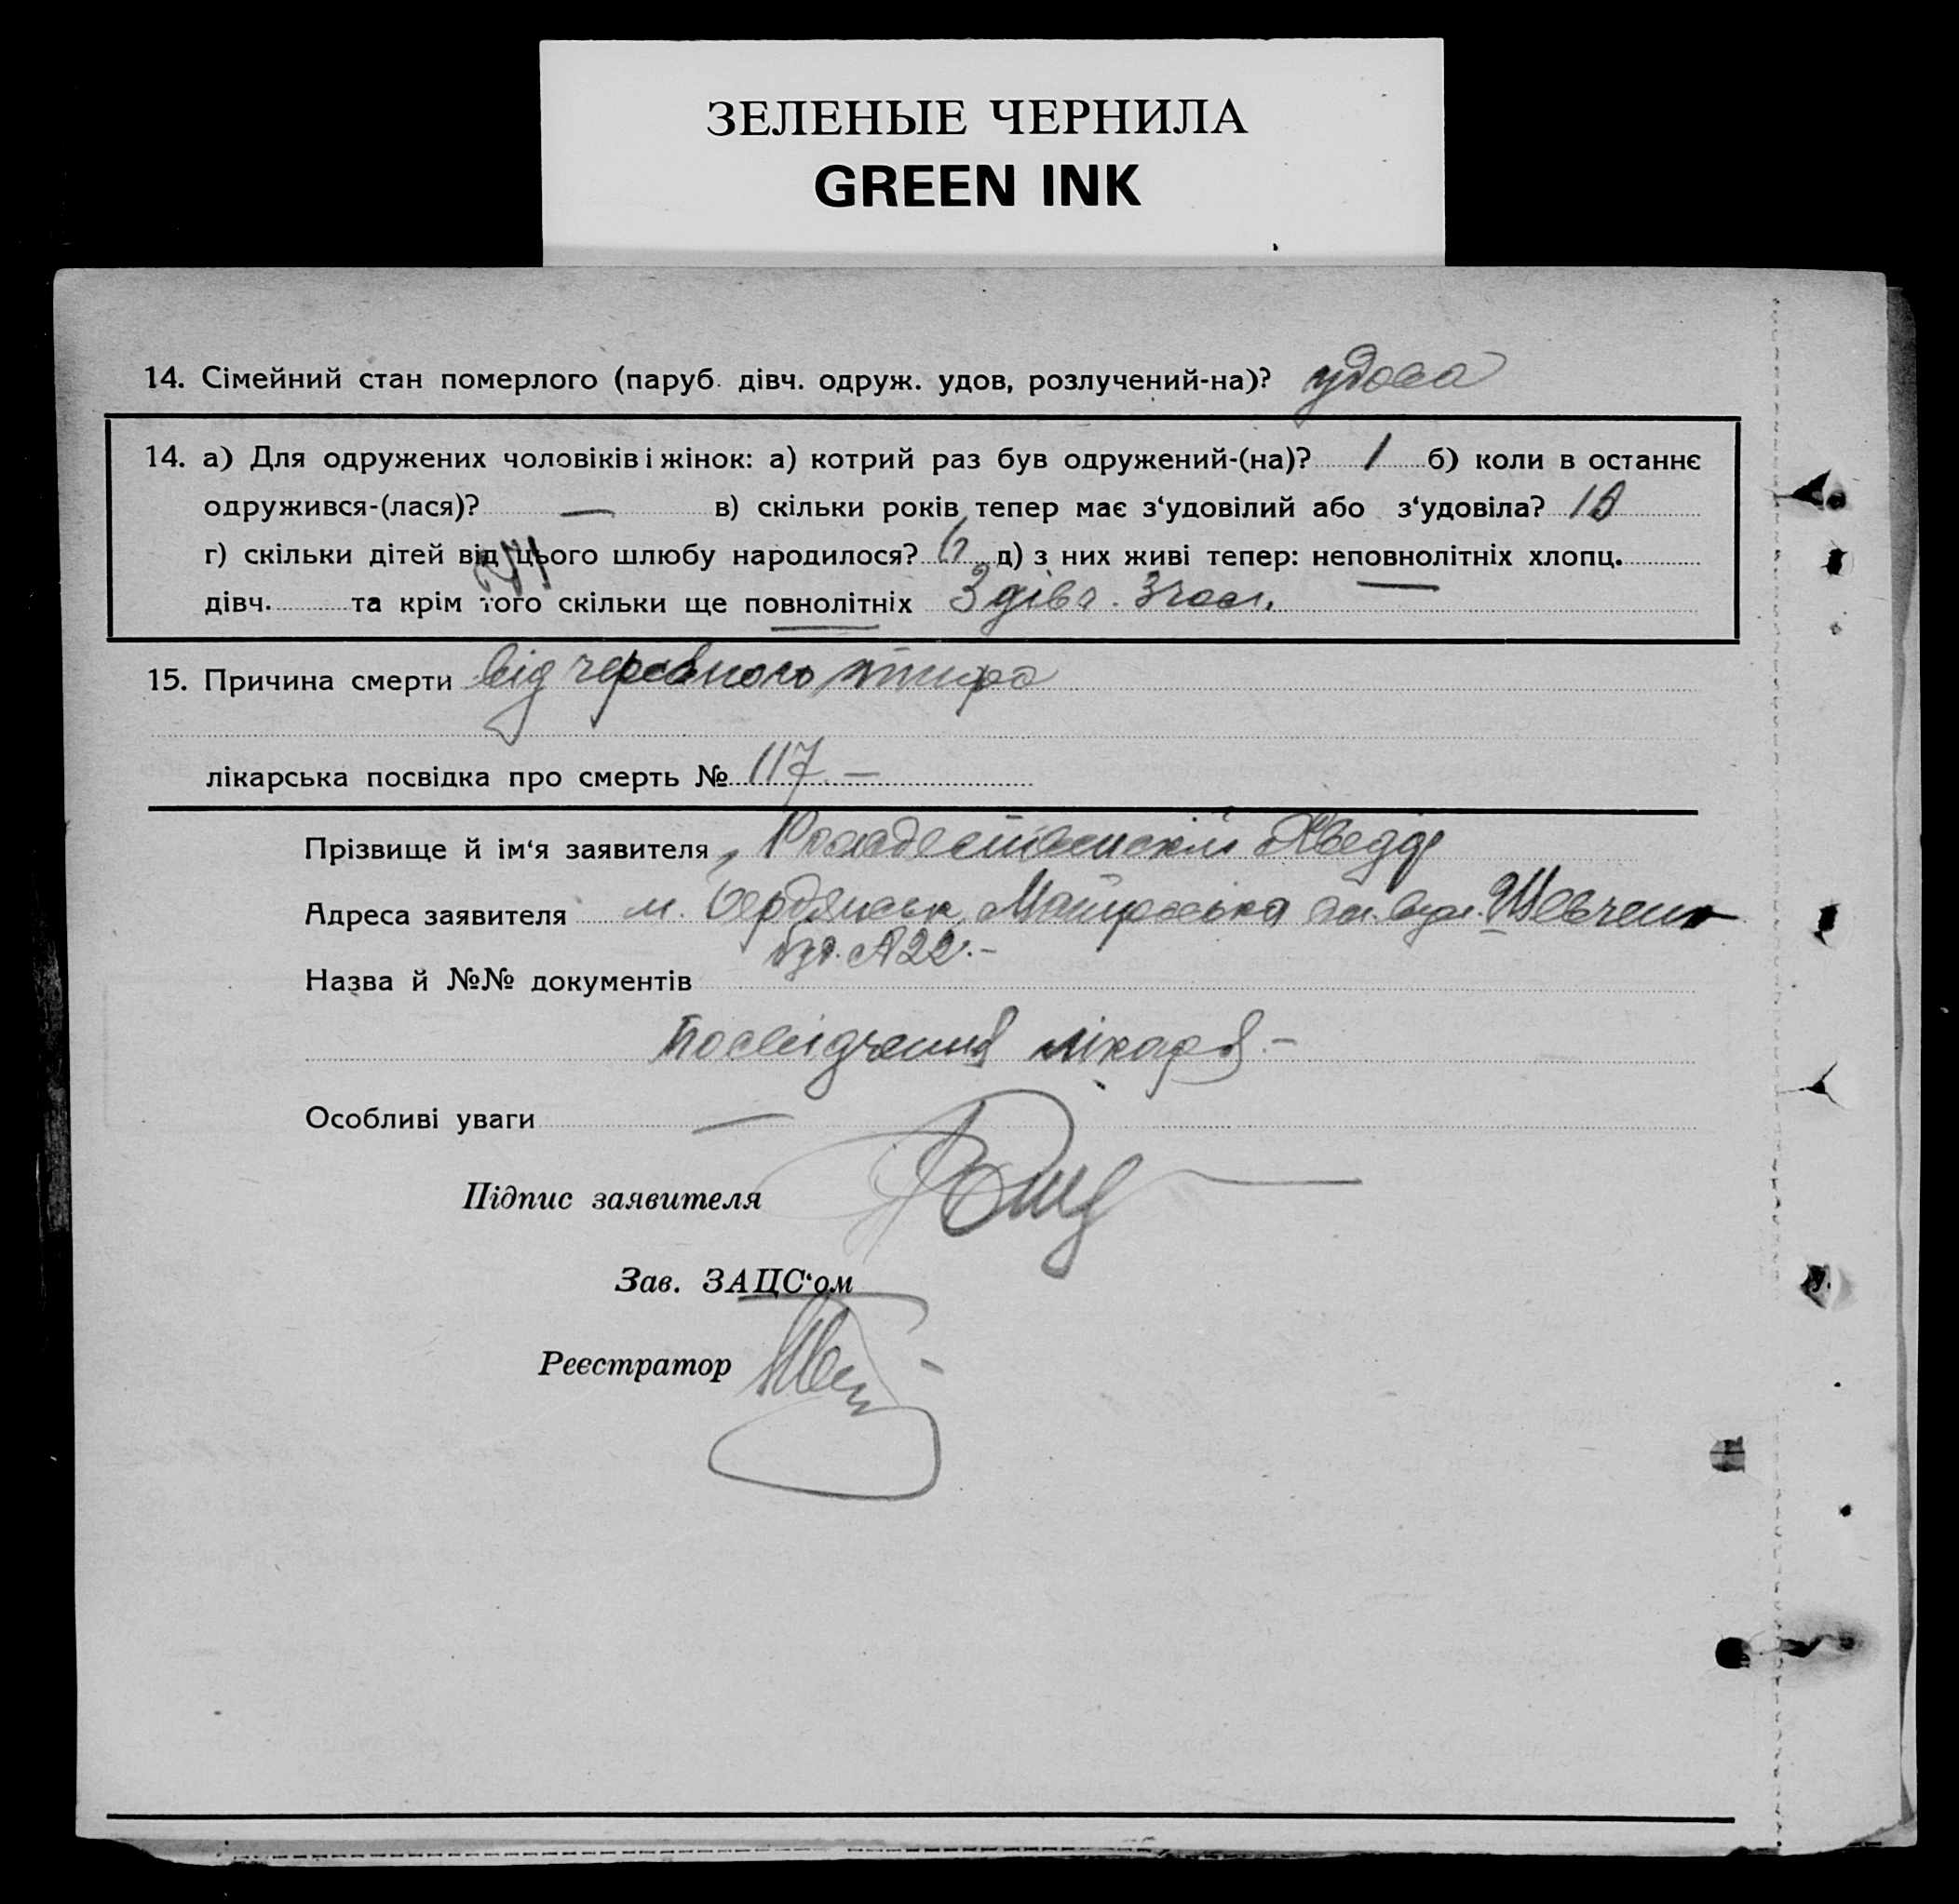 ЗЕЛЕНЫЕ ЧЕРНИЛА
GREEN INK
14. Сімейний стан померлого (паруб. дівч. одруж. удов, розлучений-на)? удова
14. а) Для одружених чоловіків і жінок: а) котрий раз був одружений-(на)? 1 б) коли в останнє
одружився-(лася)? — в) скільки років тепер має з‘удовілий або з‘удовіла?
г) скільки дітей від цього шлюбу народилося? 6 д) з них живі тепер: неповнолітніх хлопц. —
дівч. та крім того скільки ще повнолітніх 3 дівч. 3 чол.
15. Причина смерти від черевного тифа
лікарська посвідка про смерть № 117. —
Прізвище й ім‘я заявителя
Адреса заявителя м. Бердянськ, вул. Шевченк
Назва й №№ документів
Посвідчення лікаря. —
Особливі уваги —
Підпис заявителя
Зав. ЗАЦС‘ом
Реєстратор